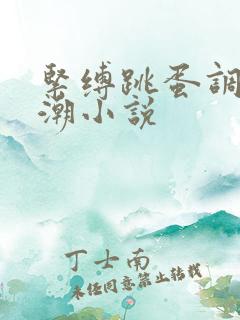 緊缚跳蛋調
潮小説
丁士南
未经同意禁止转载